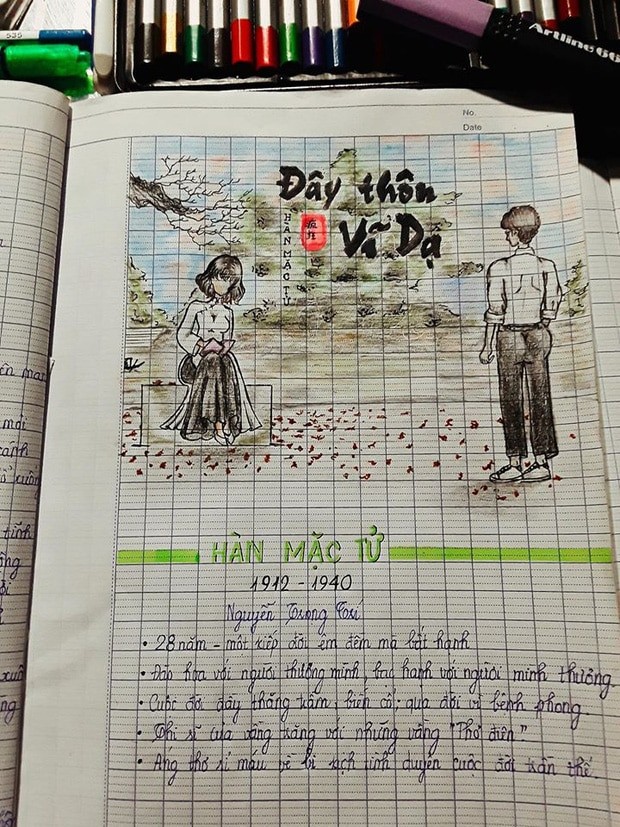 535
Artline 66
No.
Date
Đây thôn
Vĩ Dạ
HÀN MẶC TỬ
HÀN MẶC TỬ
1912 - 1940
Nguyễn Trọng Trí
• 28 năm - một kiếp đời êm đềm mà bất hạnh
• Đào hoa với người thương mình, bạc hạnh với người mình thương
• Cuộc đời đầy thăng trầm, biến cố, qua đời vì bệnh phong.
• Thi sĩ của vầng trăng với những vầng "Thơ điên"
• Áng thơ rỉ máu về bi kịch tình duyên cuộc đời trần thế